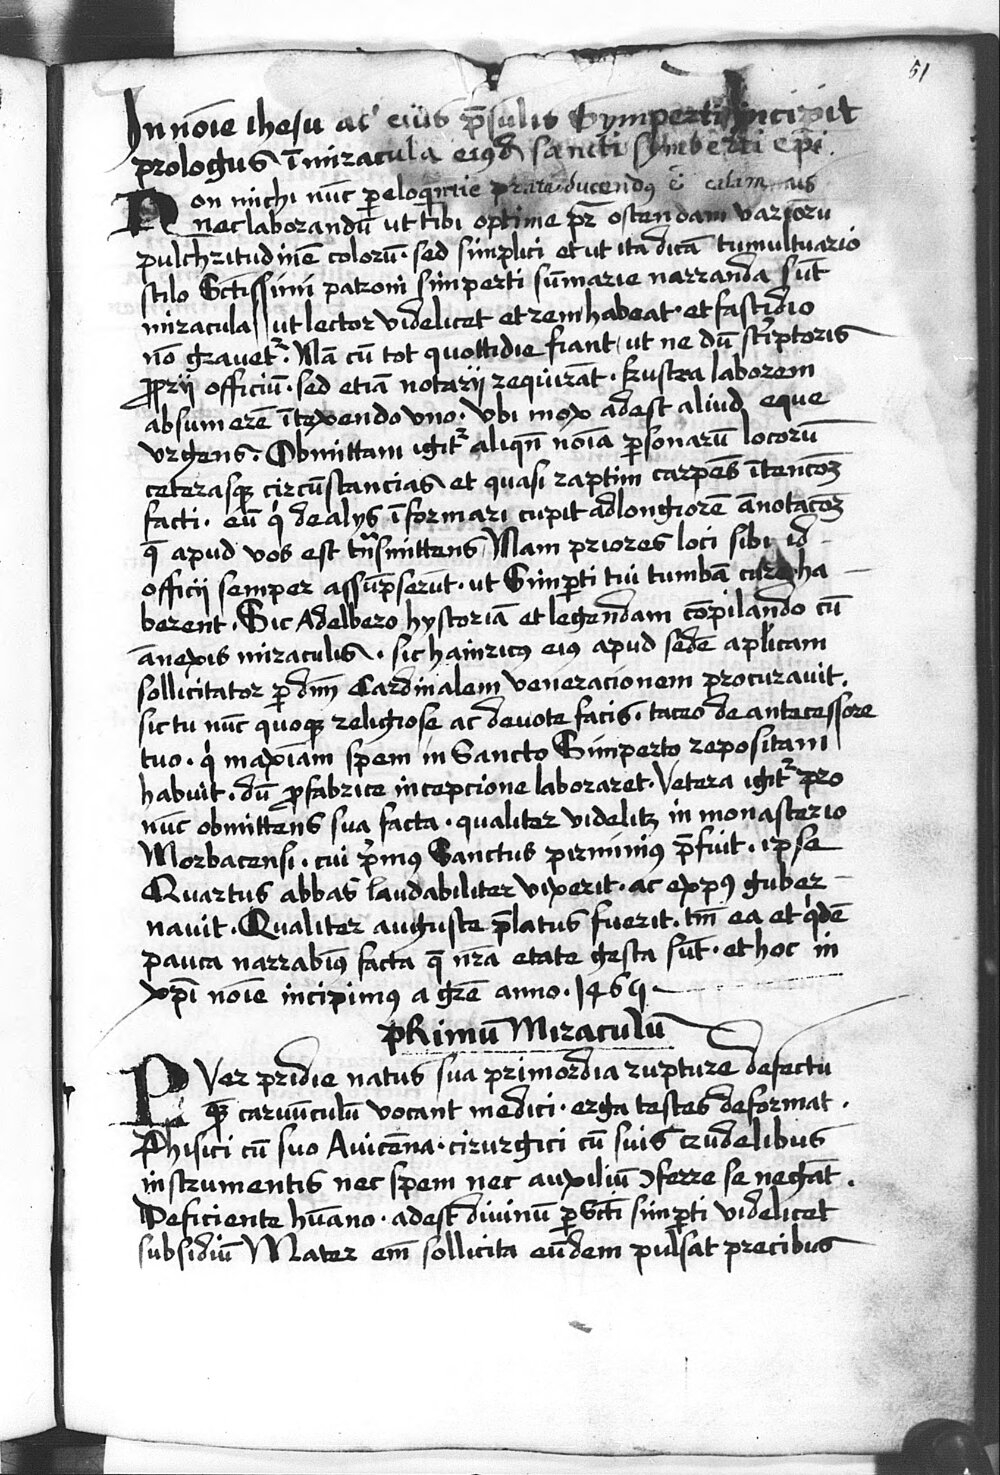 51
In nōie ihesu ac eiūs p̄sulis Symperti Incipit
prologus ī miracula eiusdē sancti Symberti ep̄i
Non michi nūc p eloquētie prata ducendus ē calamus
nec laborandū ut tibi optime pr̄ ostendam varioru
pulchritudinē colorū · sed simplici et ut ita dicā tumultuario
stilo Sctīssimi patroni simperti sūmarie narranda sūt
miracula ut lector videlicet et rem habeat · et fastidio
nō gravetr̄ · Nā cū tot quottidie fiant ut ne dū scriptoris
ꝓprij officiū · sed etiā notarij requirāt · frustra laborem
absumerē ī texendo uno · Vbi mox adest aliud eque
vrgens · Obmittam igitr̄ aliqn̄ noīa ꝑsonarū locorū
ceterasqꝫ circūstancias et quasi raptim carpēs ītencōꝫ
facti · eū qi de alijs īformari cupit ad longiorē ānotacōꝫ
q̄ apud vos est trn̄smittens Nam priores loci sibi id
officij semper assūpserūt · ut Simꝑti tui tumbā caram ha
berent · Sic Adelbero hystoriā et legendam cōpilando cū
ānexis miraculis · sic hainricꝰ eiꝰ apud sedē aplicam
sollicitator ꝑ dn̄m Cardinalem veneracionem procuravit ·
sic tu nūc quoqꝫ religiose ac devote facis · taceo de antecessore
tuo · qi maxīam spem in Sancto Simperto repositam
habuit · dū ꝓ fabrice incepcione laboraret · Vetera igitr̄ pro
nūc obmittens sua facta · qualiter videlitꝫ in monasterio
Morbacensi · cui p̄mꝰ Sanctus pirminiꝰ p̄fuit · ipse
Quartus abbas laudabiliter vixerit · ac exppꝰ guber
navit · Qualiter auguste p̄latus fuerit · tm̄ ea et qidē
pauca narrabimꝰ facta q̄ nr̄a etate gesta sūt · et hoc in
xp̄i noīe incipimꝰ a grē anno ·
pRimū Miraculū
PVer pridie natus sua primordia rupture defectu
quē caruūculū vocant medici · erga testes deformat ·
Phisici cū suo Avicēna · cirurgici cū suis crudelibus
instrumentis nec spem nec auxiliū ꝯferre se negāt ·
Deficiente hūano · adest divinū ꝑ Scti simꝑti videlicet
subsidiū Mater em̄ sollicita eūdem pulsat precibus